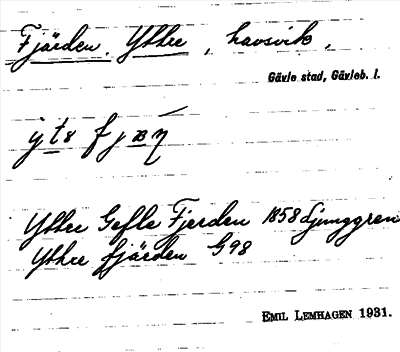 Fjärden, Yttre, havsvik,
Gävle stad, Gävleb. l.
Yttre Gefle Fjerden 1858 Ljunggren
Yttre fjärden G98
EMIL LEMHAGEN 1931.